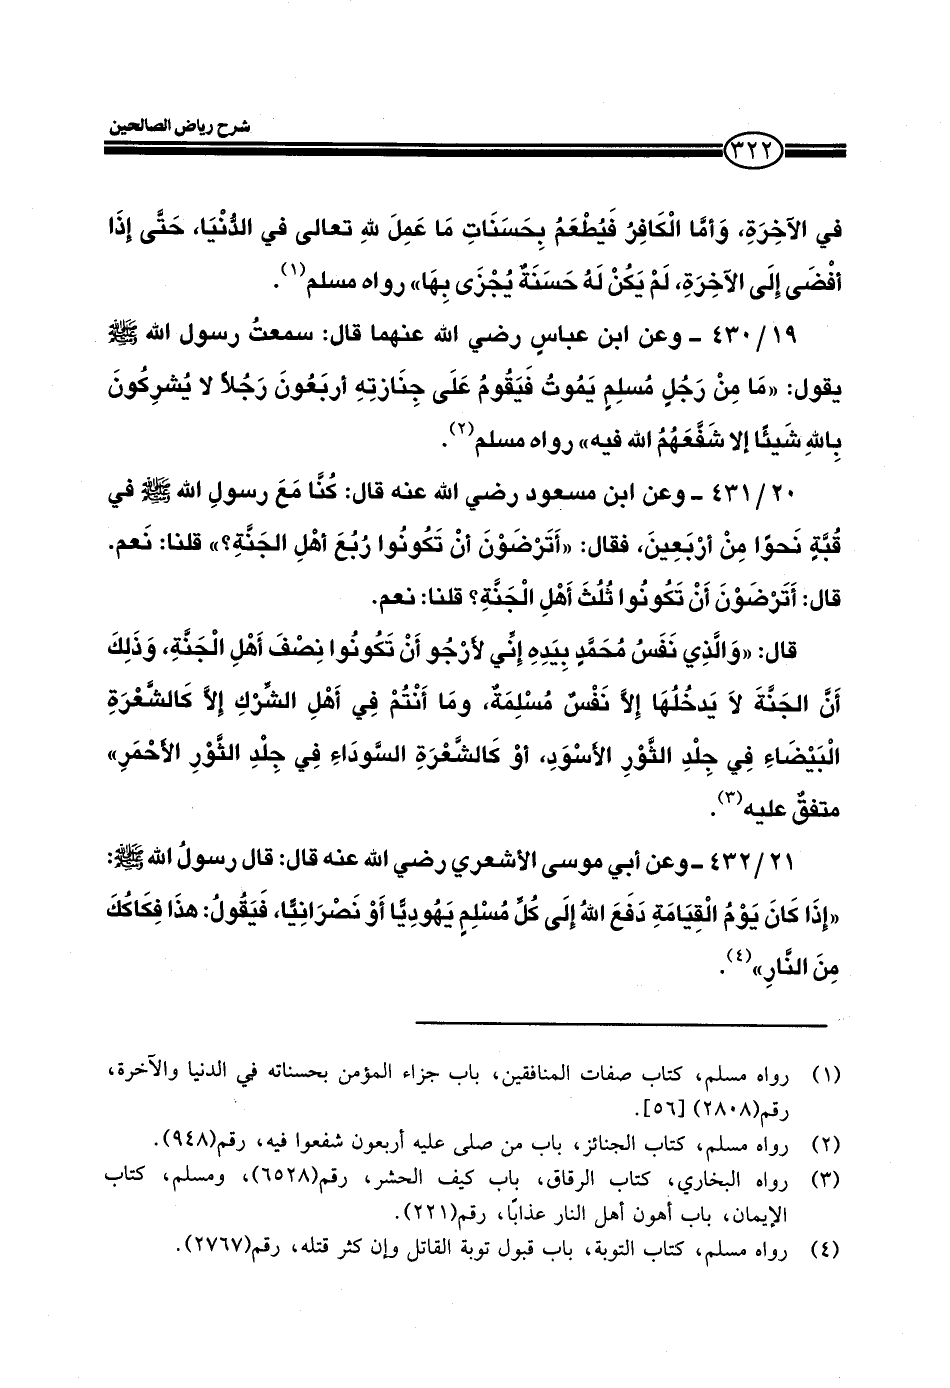 شرح رياض الصالحين
٣٢٢
في الآخِرَةِ، وَأمَّا الْكَافِرُ فَيُطْعَمُ بِحَسَنَاتِ مَا عَمِلَ للهِ تعالى في الدُّنْيَا، حَتَّى إذَا
أفْضَى إلَى الآخِرَةِ، لَمْ يَكُنْ لَهُ حَسَنَةٌ يُجْزَى بِهَا» رواه مسلم(١).
٤٣٠/١٩ ـ وعن ابن عباسٍ رضي الله عنهما قال: سمعتُ رسول الله ﷺ
يقول: «مَا مِنْ رَجُلٍ مُسلِمٍ يَمُوتُ فَيَقُومُ عَلَى جِنَازتِهِ أربَعُونَ رَجُلاً لا يُشرِكُونَ
بِاللهِ شَيئًا إلا شَفَّعَهُمُ الله فيه» رواه مسلم(٢).
٤٣١/٢٠ ـ وعن ابن مسعود رضي الله عنه قال: كُنَّا مَعَ رسولِ الله ﷺ في
قُبَّةٍ نَحوًا مِنْ أرْبَعِينَ، فقال: «أَتَرْضَوْنَ أنْ تَكُونُوا رُبُعَ أهْلِ الجَنَّةِ؟» قلنا: نَعم.
قال: أتَرْضَوْنَ أَنْ تَكُونُوا ثُلُثَ أَهْلِ الْجَنَّةِ؟ قلنا: نعم.
قال: «وَالَّذِي نَفَسُ مُحَمَّدٍ بِيَدِهِ إنِّي لأرْجُو أنْ تَكُونُوا نِصْفَ أهْلِ الْجَنَّةِ، وَذَلِكَ
أَنَّ الجَنَّةَ لاَ يَدخُلُهَا إلاَّ نَفْسٌ مُسْلِمَةٌ، ومَا أنْتُمْ فِي أهْلِ الشِّركِ إلاَّ كَالشَّعْرَةِ
الْبَيْضَاءِ فِي جِلْدِ الثَّوْرِ الأسْوَدِ، أوْ كَالشَّعْرَةِ السَّودَاءِ فِي جِلْدِ الثَّوْرِ الأحْمَرِ»
متفقٌ عليه(٣).
٤٣٢/٢١ ـ وعن أبي موسى الأشعري رضي الله عنه قال: قال رسولُ الله ﷺ:
«إذَا كَانَ يَوْمُ الْقِيَامَةِ دَفَعَ اللهُ إلَى كُلِّ مُسْلِمٍ يَهُودِيًّا أوْ نَصْرَانِيًّا، فَيَقُولُ: هذَا فِكَاكُكَ
مِنَ النَّارِ»(٤).
(١) رواه مسلم، كتاب صفات المنافقين، باب جزاء المؤمن بحسناته في الدنيا والآخرة،
رقم(٢٨٠٨) [٥٦].
(٢) رواه مسلم، كتاب الجنائز، باب من صلى عليه أربعون شفعوا فيه، رقم(٩٤٨).
(٣) رواه البخاري، كتاب الرقاق، باب كيف الحشر، رقم(٦٥٢٨)، ومسلم، كتاب
الإيمان، باب أهون أهل النار عذابًا، رقم(٢٢١).
(٤) رواه مسلم، كتاب التوبة، باب قبول توبة القاتل وإن كثر قتله، رقم(٢٧٦٧).